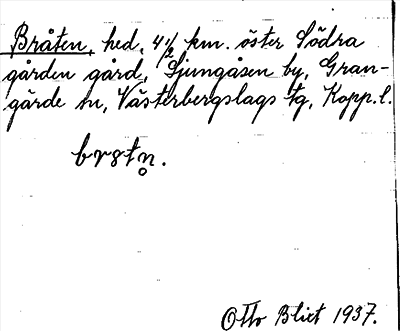 Bråten, hed, 4 1/2 km. öster Södra
gården gård, Ljungåsen by, Gran-
gärde sn, Västerbergslags tg, Kopp. l.
brɷtn̥.
Otto Blixt 1937.